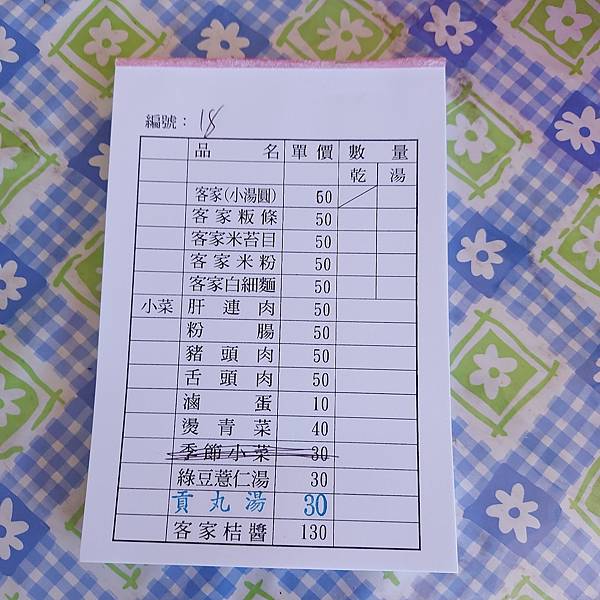 編號: 18
品名 單價 數量
乾 湯
客家(小湯圓) 60
客家粄條 50
客家米苔目 50
客家米粉 50
客家白細麵 50
小菜 肝連肉 50
粉腸 50
豬頭肉 50
舌頭肉 50
滷蛋 10
燙青菜 40
季節小菜 30
綠豆薏仁湯 30
貢丸湯 30
客家桔醬 130